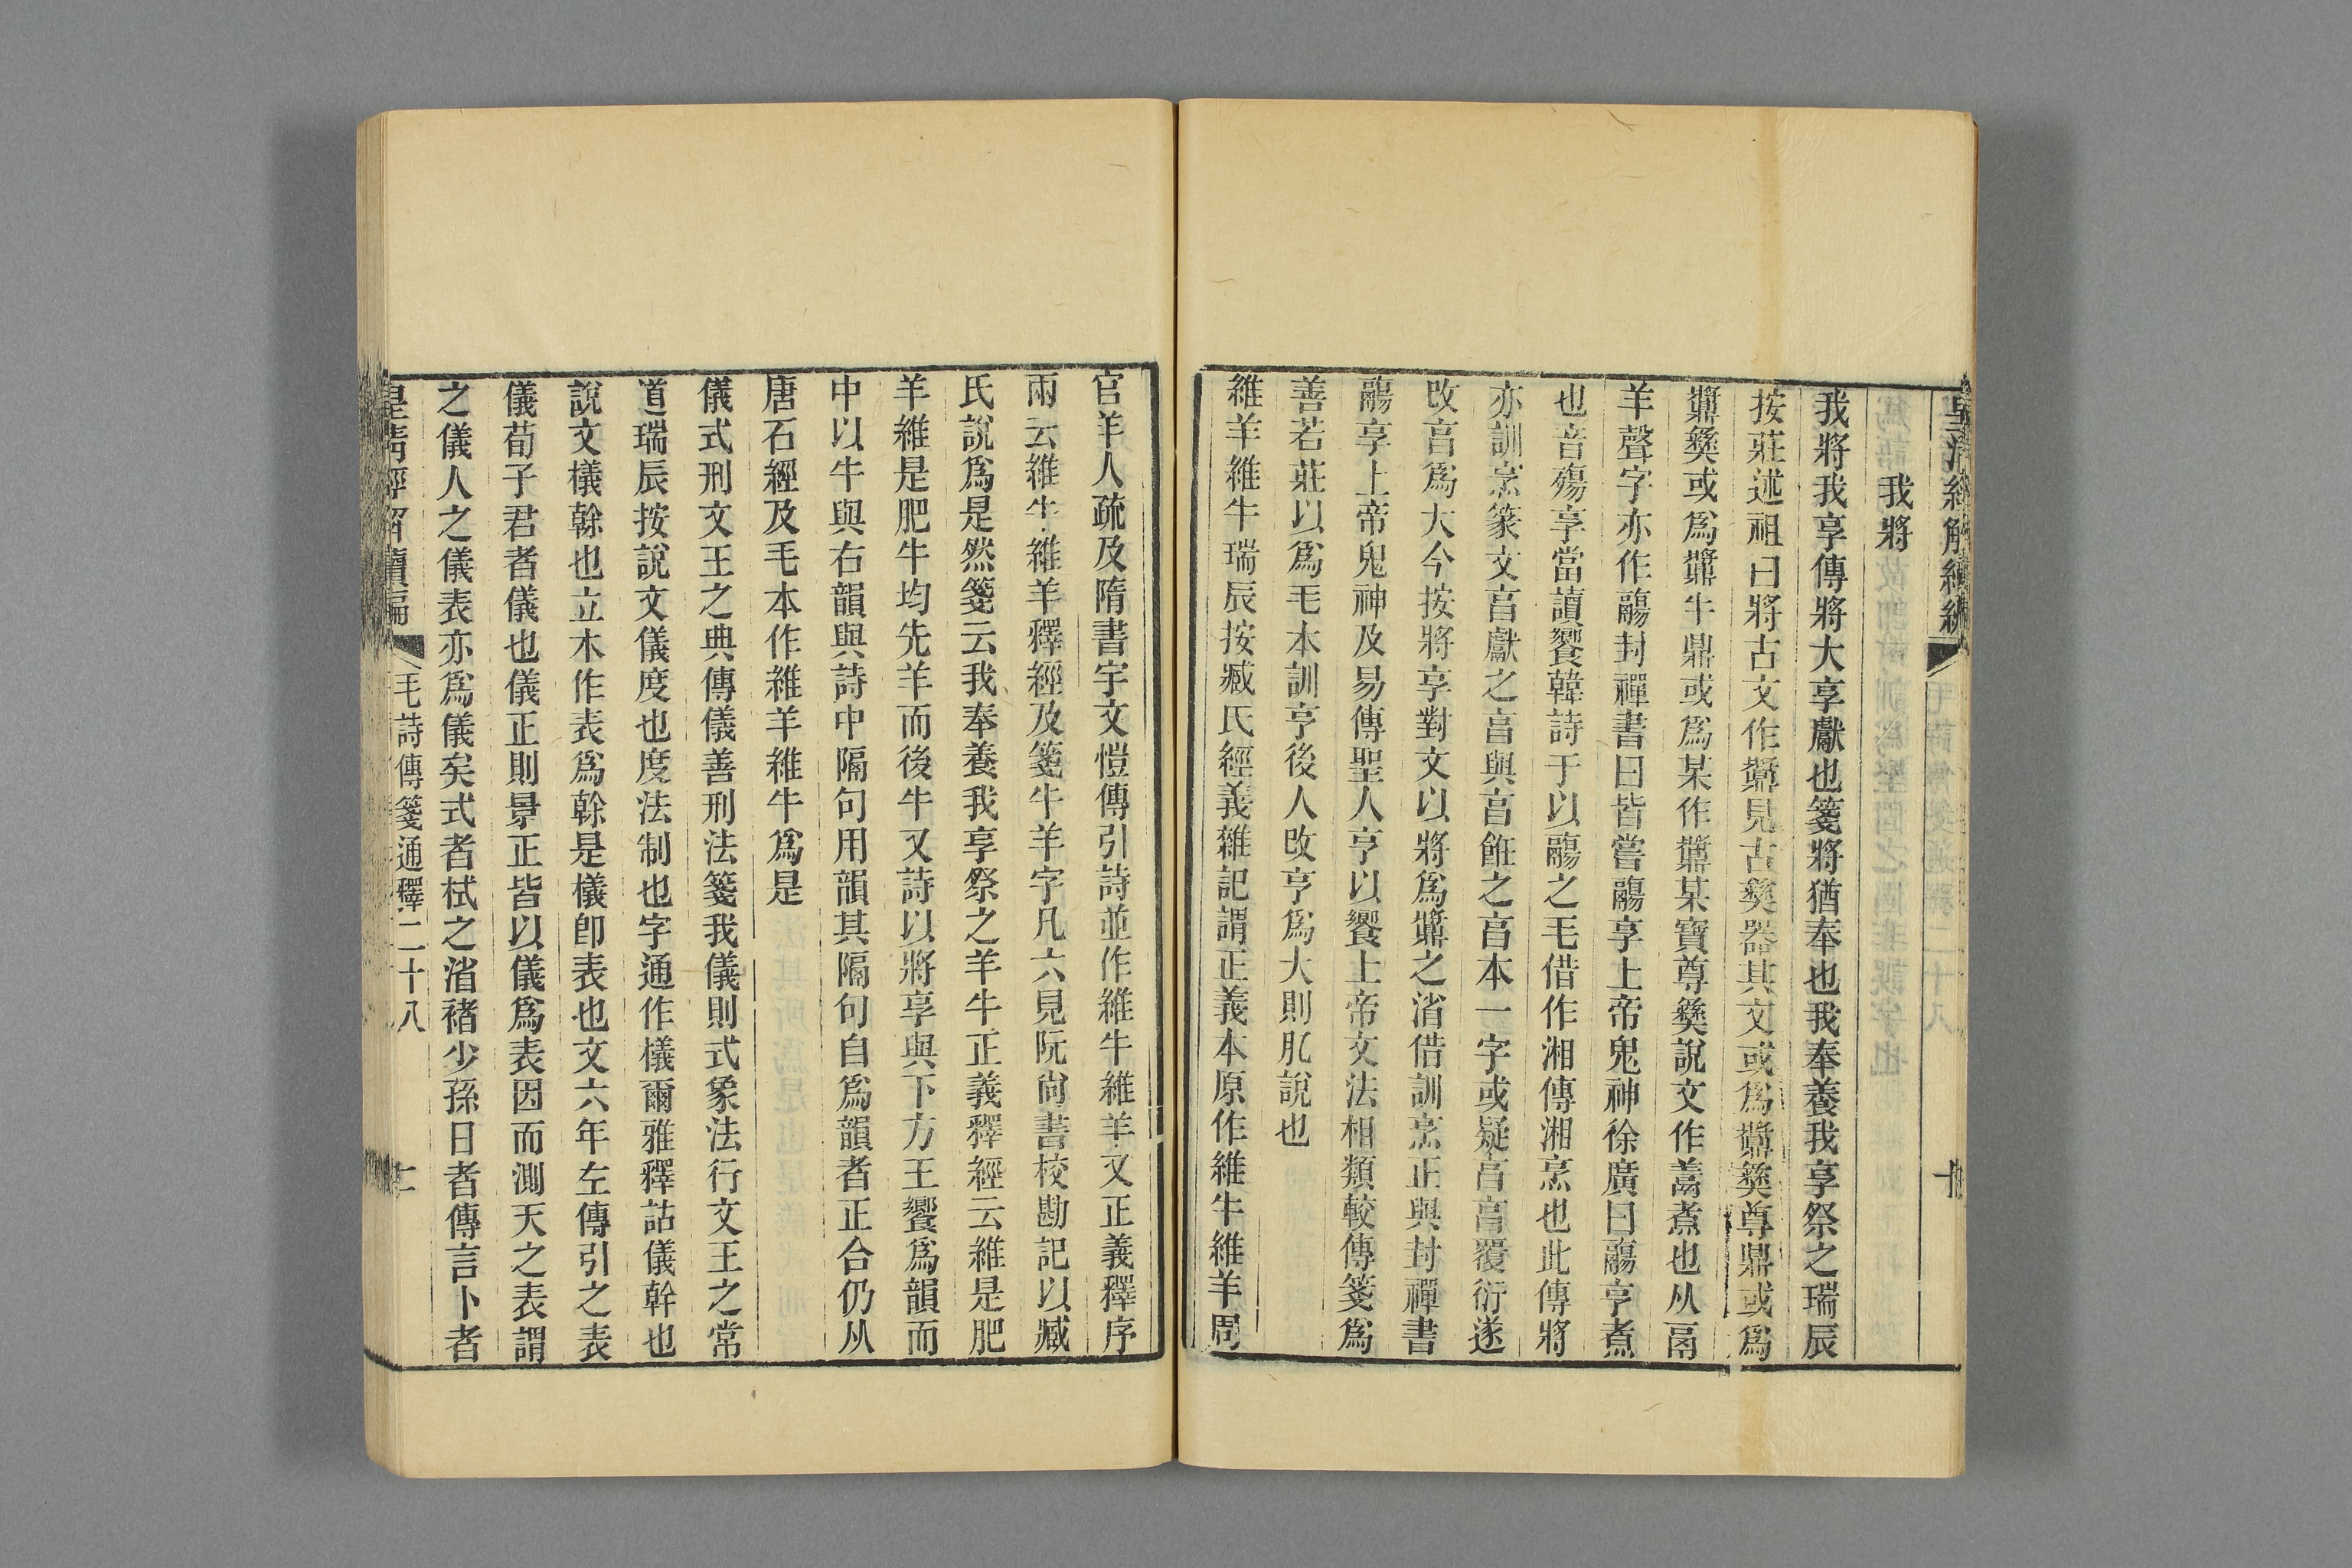 我將
我將我享傳將大享獻也箋將猶奉也我奉養我享祭之瑞辰
按莊述祖曰將古文作䵼見古彝器其文或爲䵼彝尊鼎或爲
䵼彝或爲䵼牛鼎或爲某作䵼某寶尊彝說文作䰞煮也从鬲
羊聲字亦作鬺封禪書曰皆嘗鬺享上帝鬼神徐廣曰鬺亨煮
也音殤享當讀饗韓詩于以鬺之毛借作湘傳湘烹也此傳將
亦訓烹篆文亯獻之亯與亯飪之亯本一字或疑亯亯覆衍遂
改亯爲大今按將享對文以將爲䵼之渻借訓烹正與封禪書
鬺享上帝鬼神及易傳聖人亨以饗上帝文法相類較傳箋爲
善若莊以爲毛本訓亨後人改亨爲大則肊說也
維羊維牛瑞辰按臧氏經義雜記謂正義本原作維牛維羊周
官羊人疏及隋書宇文愷傳引詩並作維牛維羊又正義釋序
兩云維牛維羊釋經及箋牛羊字凡六見阮尙書校勘記以臧
氏說爲是然箋云我奉養我享祭之羊牛正義釋經云維是肥
羊維是肥牛均先羊而後牛又詩以將享與下方王饗爲韻而
中以牛與右韻與詩中隔句用韻其隔句自爲韻者正合仍从
唐石經及毛本作維羊維牛爲是
儀式刑文王之典傳儀善刑法箋我儀則式象法行文王之常
道瑞辰按說文儀度也度法制也字通作檥爾雅釋詁儀榦也
說文檥榦也立木作表爲榦是檥卽表也文六年左傳引之表
儀荀子君者儀也儀正則景正皆以儀爲表因而測天之表謂
之儀人之儀表亦爲儀矣式者栻之渻褚少孫日者傳言卜者
皇淸經解續編
毛詩傳箋通釋二十八